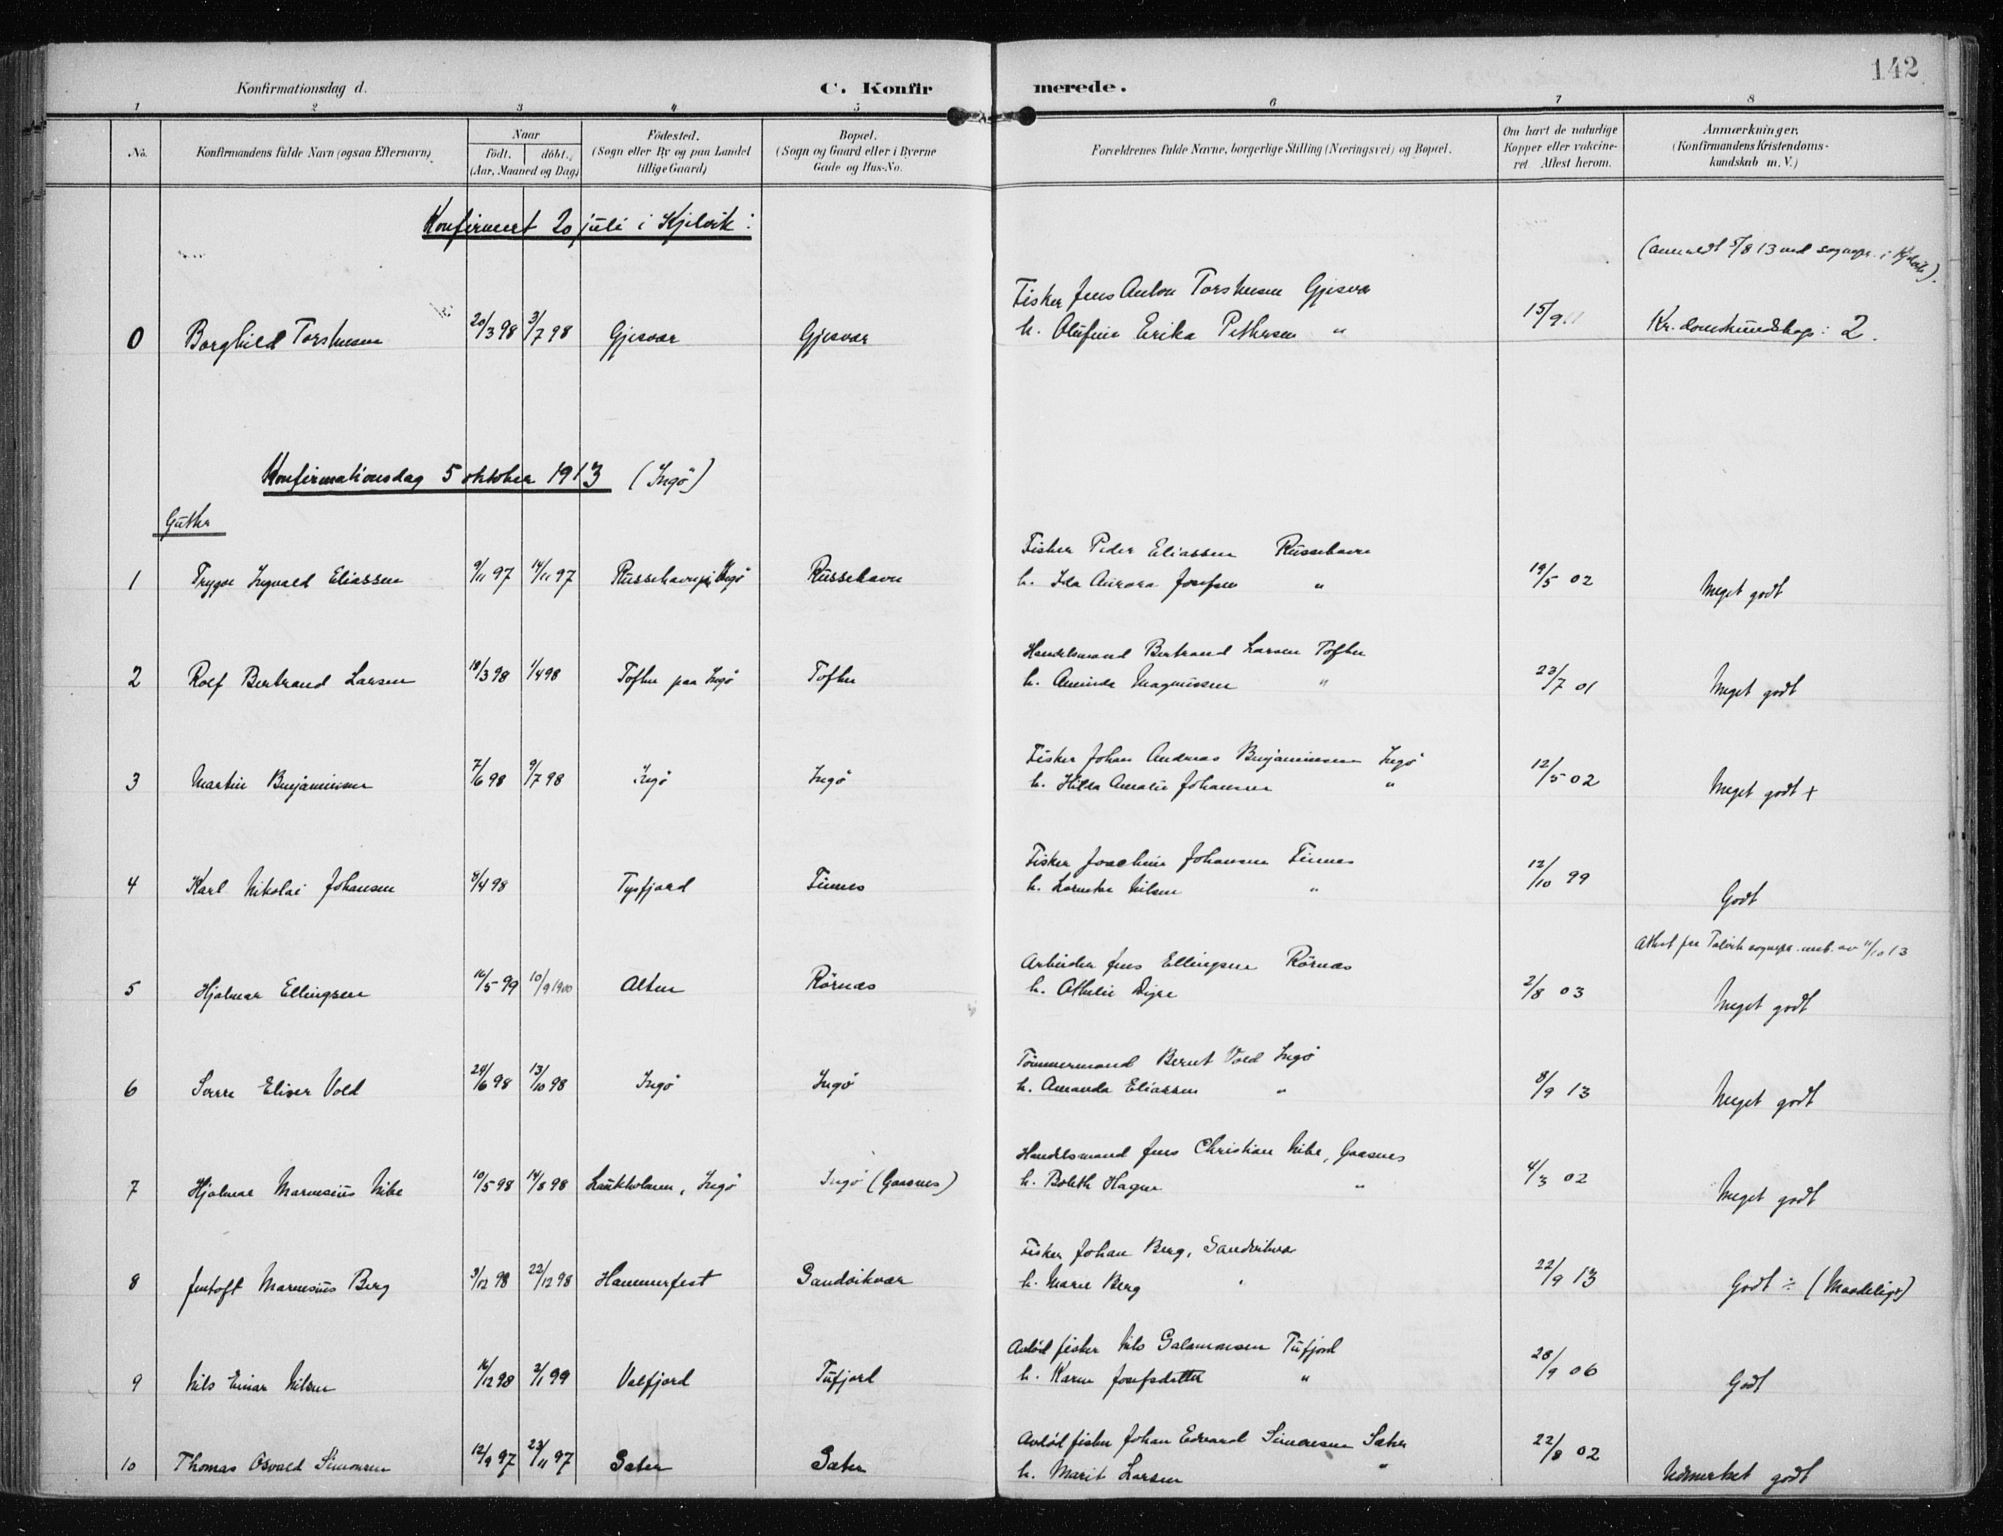 142
Konfirmationsdag d. C. Konfirmerede.
1 2 3 4 5 6 7 8
No. Konfirmandens fulde Navn (ogsaa Efternavn) Naar født. døbt. (Aar, Maaned og Dag) Fødested. (Sogn eller By og paa Landet tillige Gaard) Bopæl. (Sogn og Gaard eller i Byerne Gade og Hus-No. Forældrenes fulde Navne, borgerlige Stilling (Næringsvei) og Bopæl. Om havt de naturlige Kopper eller vakcineret Attest herom. Anmærkninger. (Konfirmandens Kristendomskundskab m. V.)
Konfirmert 20 juli i Kjelvik:
(anmeldt 5/8 13 ved sognepr. i Kjelvik).
Fisker Jens Anton Torstensen Gjesvær
0 Borghild Torstensen 20/3 98 3/7 98 Gjesvær Gjesvær h. Olufine Erika Pettersen " 15/9 11 Kr.domskundskap: 2.
Konfirmationsdag 5 oktober 1913 (Ingø)
Gutter
Fisker Peder Eliassen Russehavn
1 Trygve Ingvald Eliassen 9/11 97 14/11 97 Russehavn, Ingø Russehavn h. Ida Aurora Josefsen " 19/5 02 Meget godt
Handelsmand Bertrand Larsen Toften
2 Rolf Bertrand Larsen 18/3 98 1/4 98 Toften paa Ingø Toften h. Aminda Magnussen " 23/7 01 Meget godt
Fisker Johan Andreas Benjaminsen Ingø
3 Martin Benjaminsen 7/6 98 9/7 98 Ingø Ingø h. Hilda Amalie Johansen " 12/5 02 Meget godt +
Fisker Joachim Johansen Finnes
4 Karl Nikolai Johansen 8/4 98 Tysfjord Finnes h. Nilsen " 12/10 99 Godt
Attest fra Talvik sognepr. emb. av 11/10 13
Arbeider Jens Ellingsen Rörnæs
5 Hjalmar Ellingsen 16/5 99 10/9 1900 Alten Rörnæs h. Digre 2/8 03 Meget godt
Tömmermand Bernt Vold Ingø
6 Sverre Eliver Vold 24/6 98 13/10 98 Ingø Ingø h. Amanda Eliassen " 8/9 13 Meget godt
Handelsmand Jens Christian Nibe, Gaasnes
7 Hjalmar Marensius Nibe 10/5 98 14/8 98 Laukholmen, Ingø Ingø (Gaasnes) h. Boleth Hagen " 4/3 02 Meget godt
Fisker Johan Berg, Sandvikvær
8 Jentoft Marensius Berg 9/12 98 22/12 98 Hammerfest Sandvikvær h. Maren Berg " 22/9 13 Godt ÷ (Maadeligt)
Avdød fisker Nils Salamonsen Tufjord
9 Nils Einar Nilsen 16/12 98 2/1 99 Valfjord Tufjord h. Karen Josefsdatter " 28/9 06 Godt
Avdød fisker Johan Edvard Simonsen Sæter
10 Thomas Osvald Simonsen 12/9 97 23/11 97 Sæter Sæter h. Marit Larsen " 22/8 02 Udmerket godt